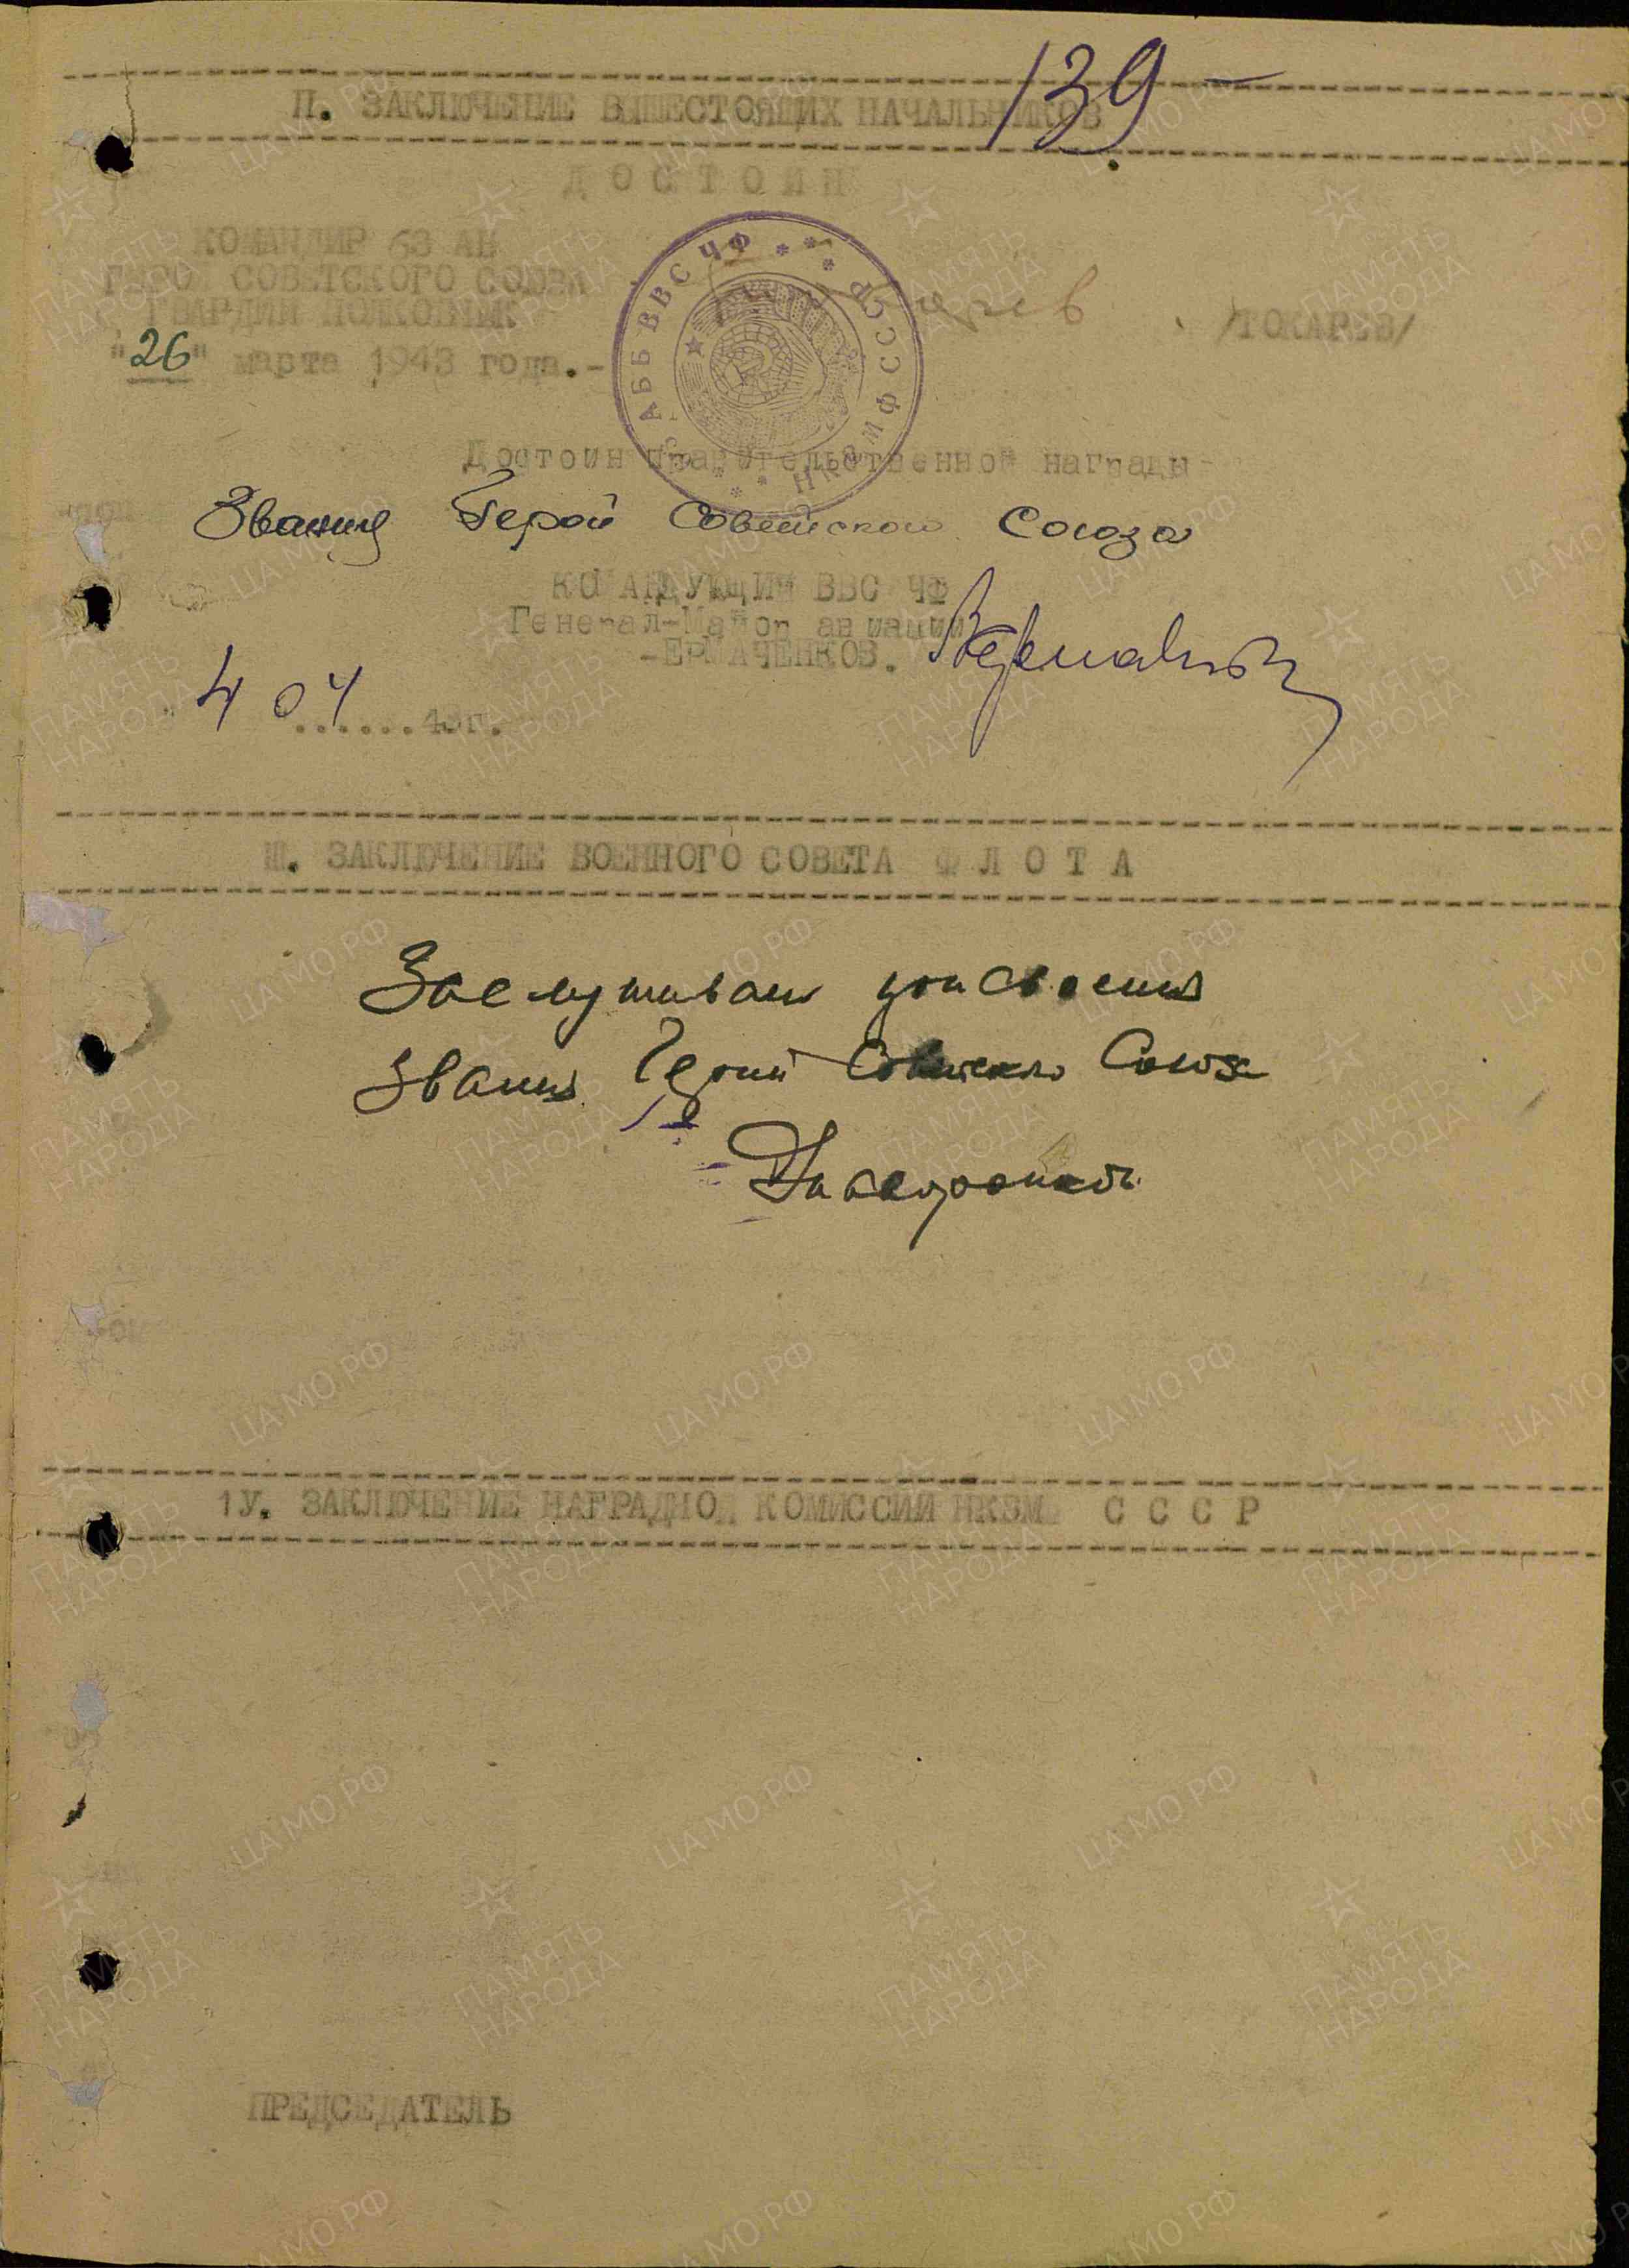 139
II. ЗАКЛЮЧЕНИЕ ВЫШЕСТОЯЩИХ НАЧАЛЬНИКОВ
ДОСТОИН
КОМАНДИР 63 АБ
ГЕРОЙ СОВЕТСКОГО СОЮЗА
ГВАРДИИ ПОЛКОВНИК
/ТОКАРЕВ/
"26" марта 1943 года.-
АББ ВВС ЧФ
НКВМФ СССР
Достоин правительственной награды-
Звания Герой Советского Союза
КОМАНДУЮЩИЙ ВВС ЧФ
Генерал-Майор авиации
-ЕРМАЧЕНКОВ.
4 04 ...... 43г.
III. ЗАКЛЮЧЕНИЕ ВОЕННОГО СОВЕТА ФЛОТА
Заслуживает присвоения
звания Герой Советского Союза
1У. ЗАКЛЮЧЕНИЕ НАГРАДНОЙ КОМИССИИ НКВМФ СССР
ПРЕДСЕДАТЕЛЬ
ПАМЯТЬ НАРОДА
ЦА МО РФ